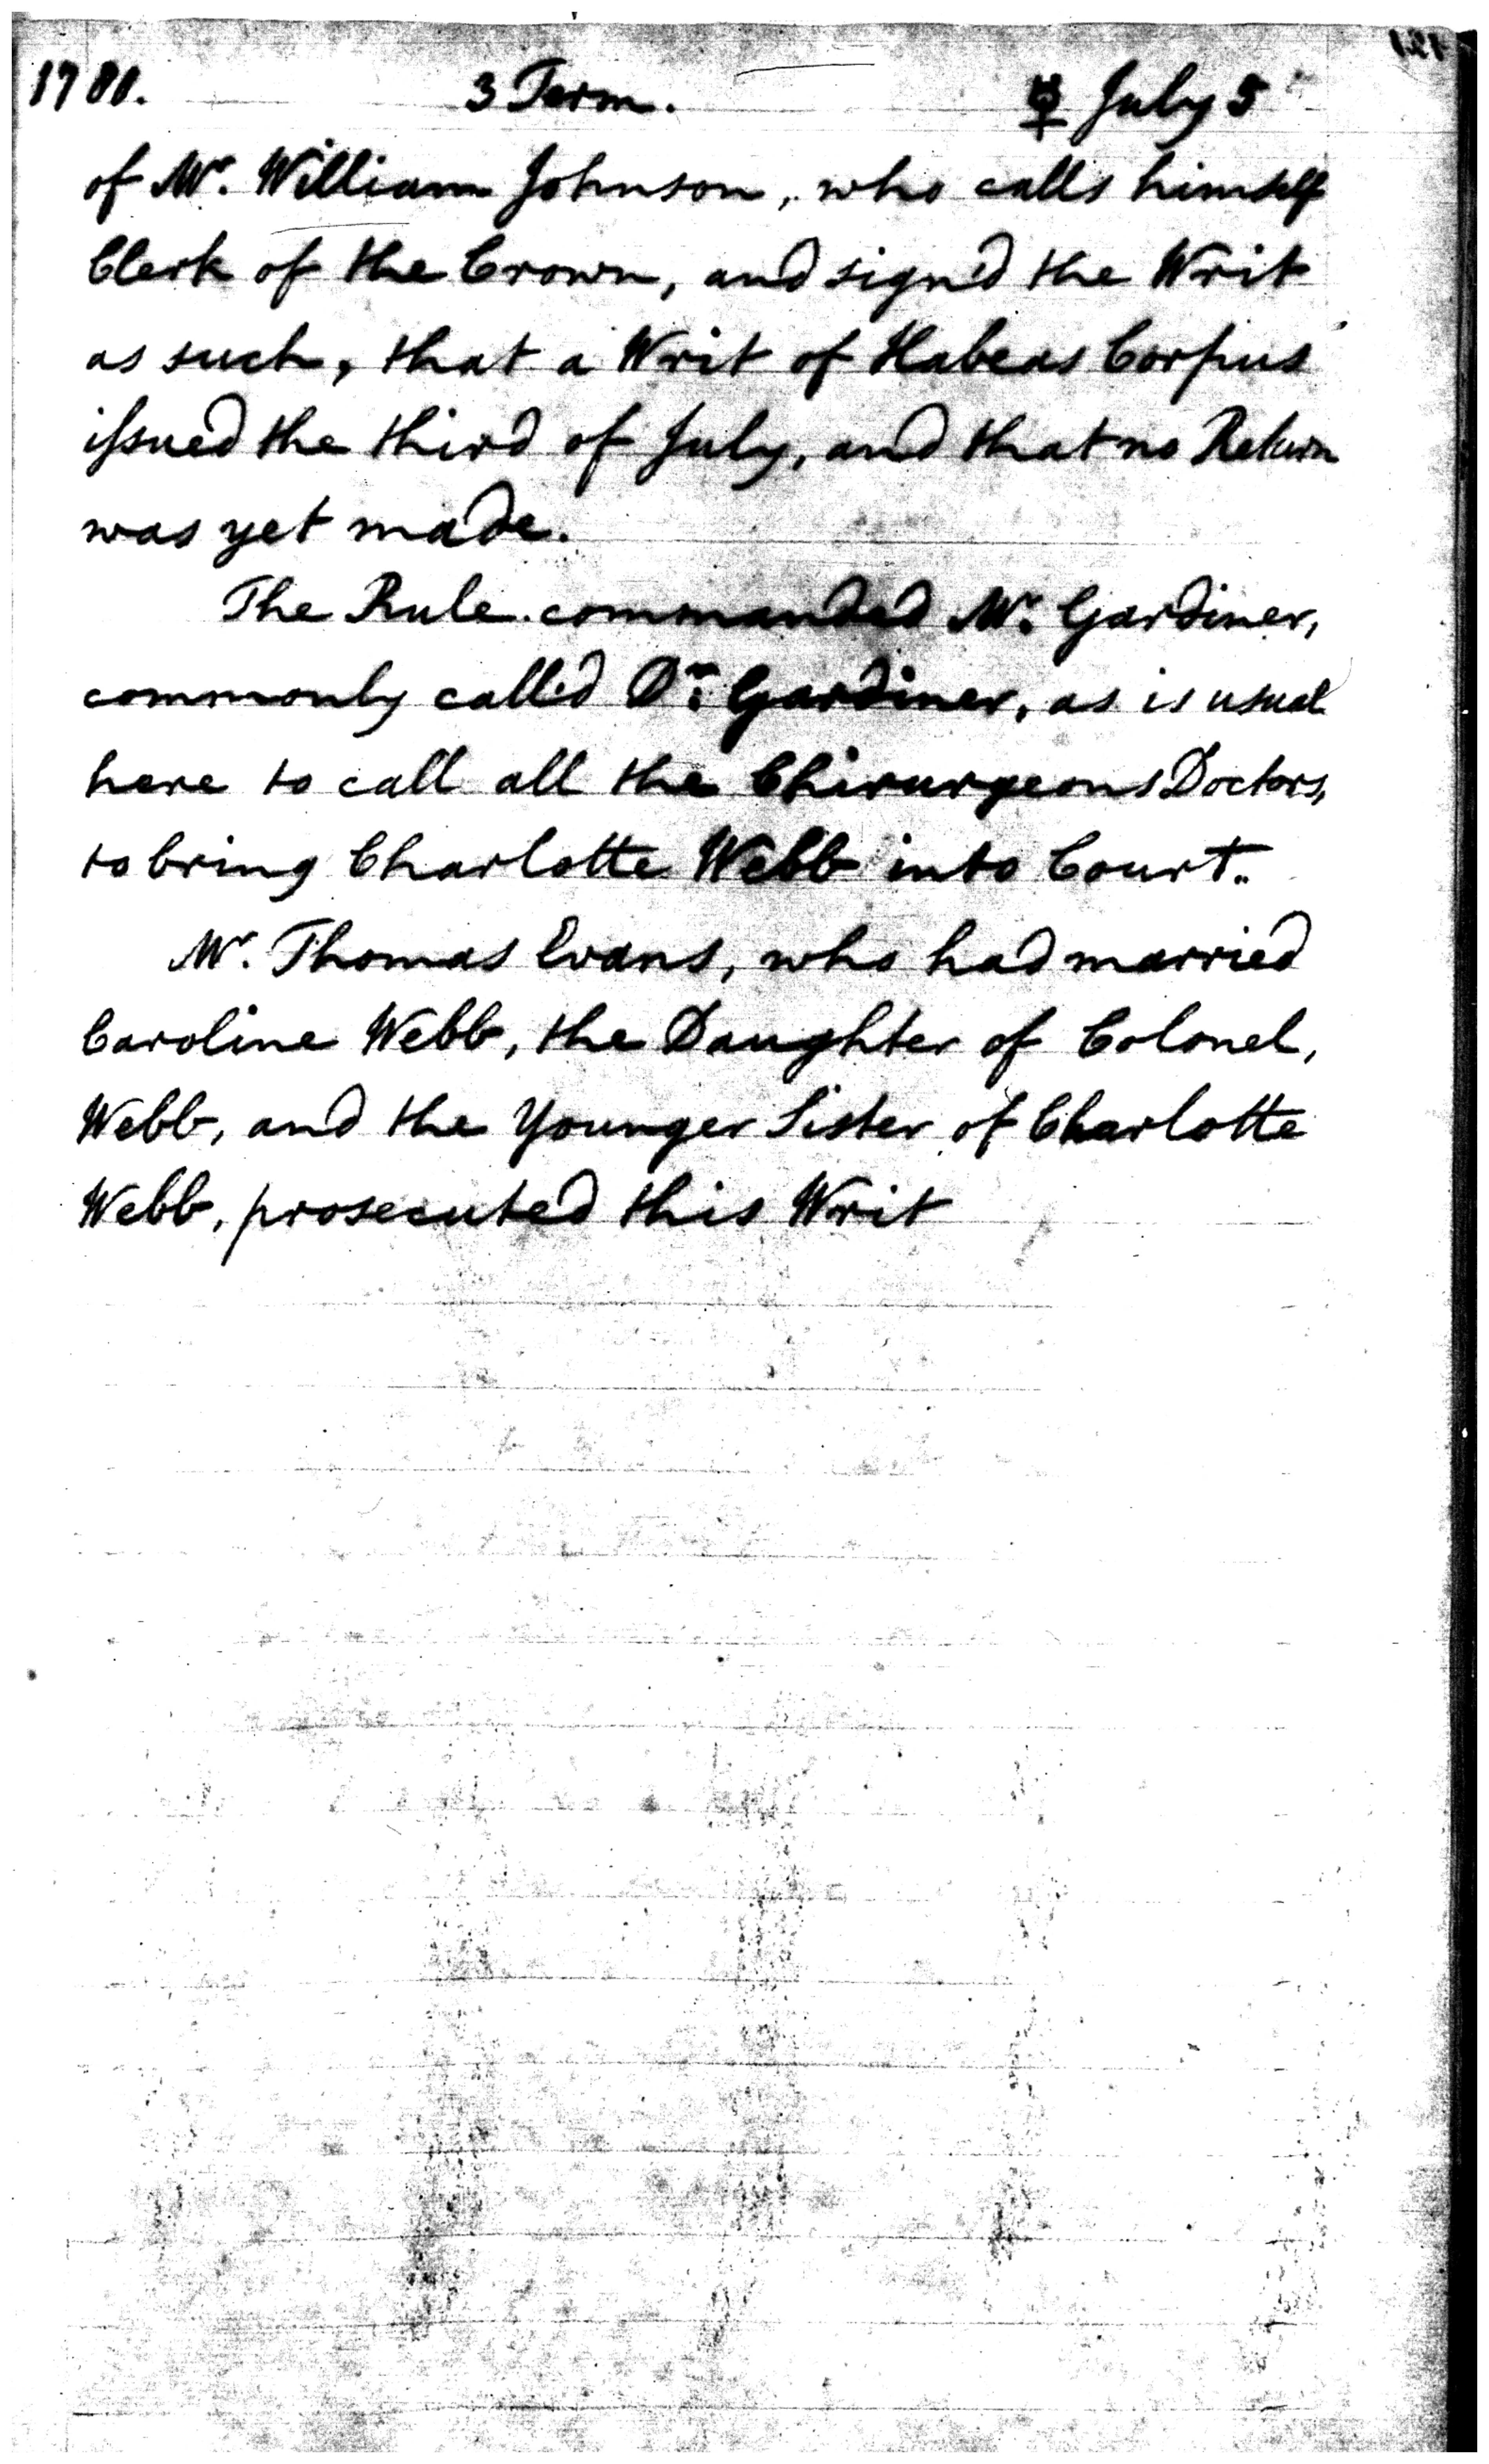 1780. 3 Term. ☿ July 5
of Mr. William Johnson, who calls himself
Clerk of the Crown, and sign'd the Writ
as such, that a Writ of Habeas Corpus
iſsued the third of July, and that no Return
was yet made.
The Rule commanded Mr. Gardiner,
commonly call'd Dr. Gardiner, as is usual
here to call all the Chirurgeons Doctors,
to bring Charlotte Webb into Court.
Mr. Thomas Evans, who had married
Caroline Webb, the Daughter of Colonel,
Webb, and the Younger Sister of Charlotte
Webb, prosecuted this Writ